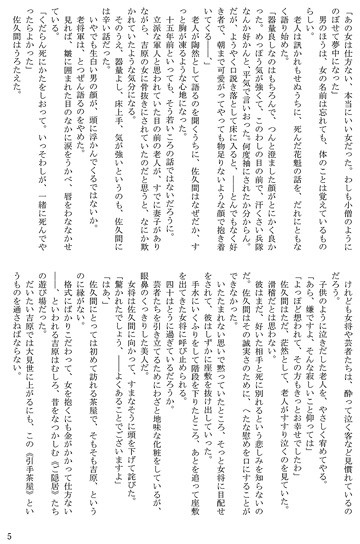 あの女は仕方ない、本当にいい女だった。わしも小僧のように
のぼせて夢中になった」
男のほうは、女の名前は忘れても、体のことは覚えているもの
らしい。
老人は訊かれもせぬうちに、死んだ花魁の話を、だれにともな
く語り始めた。
「器量良しなのはもちろんで、つんと澄ました顔がとにかく良か
った。めっぽう気が強くて、このわしの目の前で、汗くさい兵隊
なんか好かんと、平気で言いおった。何度袖にされたか分からん。
だが、ようやく口説き落として床に入ると――とんでもなく好
き者で、朝まで可愛がってやっても物足りないような顔で抱き着
いてくる」
老人が陶然として語るのを聞くうちに、佐久間はなぜだか、す
っと胸が凍るような心地になった。
十五年前といって、そう若いころの話ではないだろうに。
立派な軍人と思われていた目の前の老人が、すでに妻子があり
ながら、吉原の女に骨抜きにされていたのだと思うと、なにか欺
かれていたような気分になる。
そのうえ、器量よし、床上手、気が強いというのも、佐久間に
は辛い話だった。
いやでも生白い男の顔が、頭に浮かんでくるではないか。
老将軍は、とつぜん語るのをやめた。
見れば、皺に囲まれた目のなかに涙をうるべ、唇をわななかせ
ている。
「ぐんと死にかたをしおって。いっそわしが、一緒に死んでや
ったらよかった」
佐久間はうろたえた。
けれども女将や芸者たちは、酔って泣く客など見慣れているの
だろう。
子供のように泣きだした老人を、やさしく宥めてやる。
「あら、嫌ですよ、そんな寂しいこと仰っては」
「よっぽど想われて、その方もきっとお幸せでしたわ」
佐久間はただ、茫然として、老人がすすり泣くのを見ていた。
滑稽だとは思わない。
彼はまだ、好いた相手と死に別れるという悲しみを知らないの
だ。佐久間はその誠実さのために、へたな慰めを口にすることが
できなかった。
いたたまれない思いで黙っていたところ、そっと女将に目配せ
をされて、彼はしずかに座敷を抜け出していった。
手水にいくふりをして階段を下りたところ、あとを追って座敷
を出てきた女将に呼び止められる。
四十はとうに過ぎているのだろうか。
芸者たちを引き立てるためにわざと地味な化粧をしているが、
眼鼻のくっきりした美人だ。
女将は佐久間に向かって、すまなそうに頭を下げて詫びた。
「驚かれたでしょう、――よくあることでございますよ」
佐久間にとっては初めて訪れる茶屋で、そもそも吉原、という
のに縁がない。
格式にばかりこだわって、女を抱くにも金がかかって仕方ない
――といわれる吉原はむしろ、昔をなつかしむ《ご隠居》たち
の遊び場だった。
だいたい吉原では大見世に上がるにも、この《引手茶屋》とい
うものを通さねばならない。
5